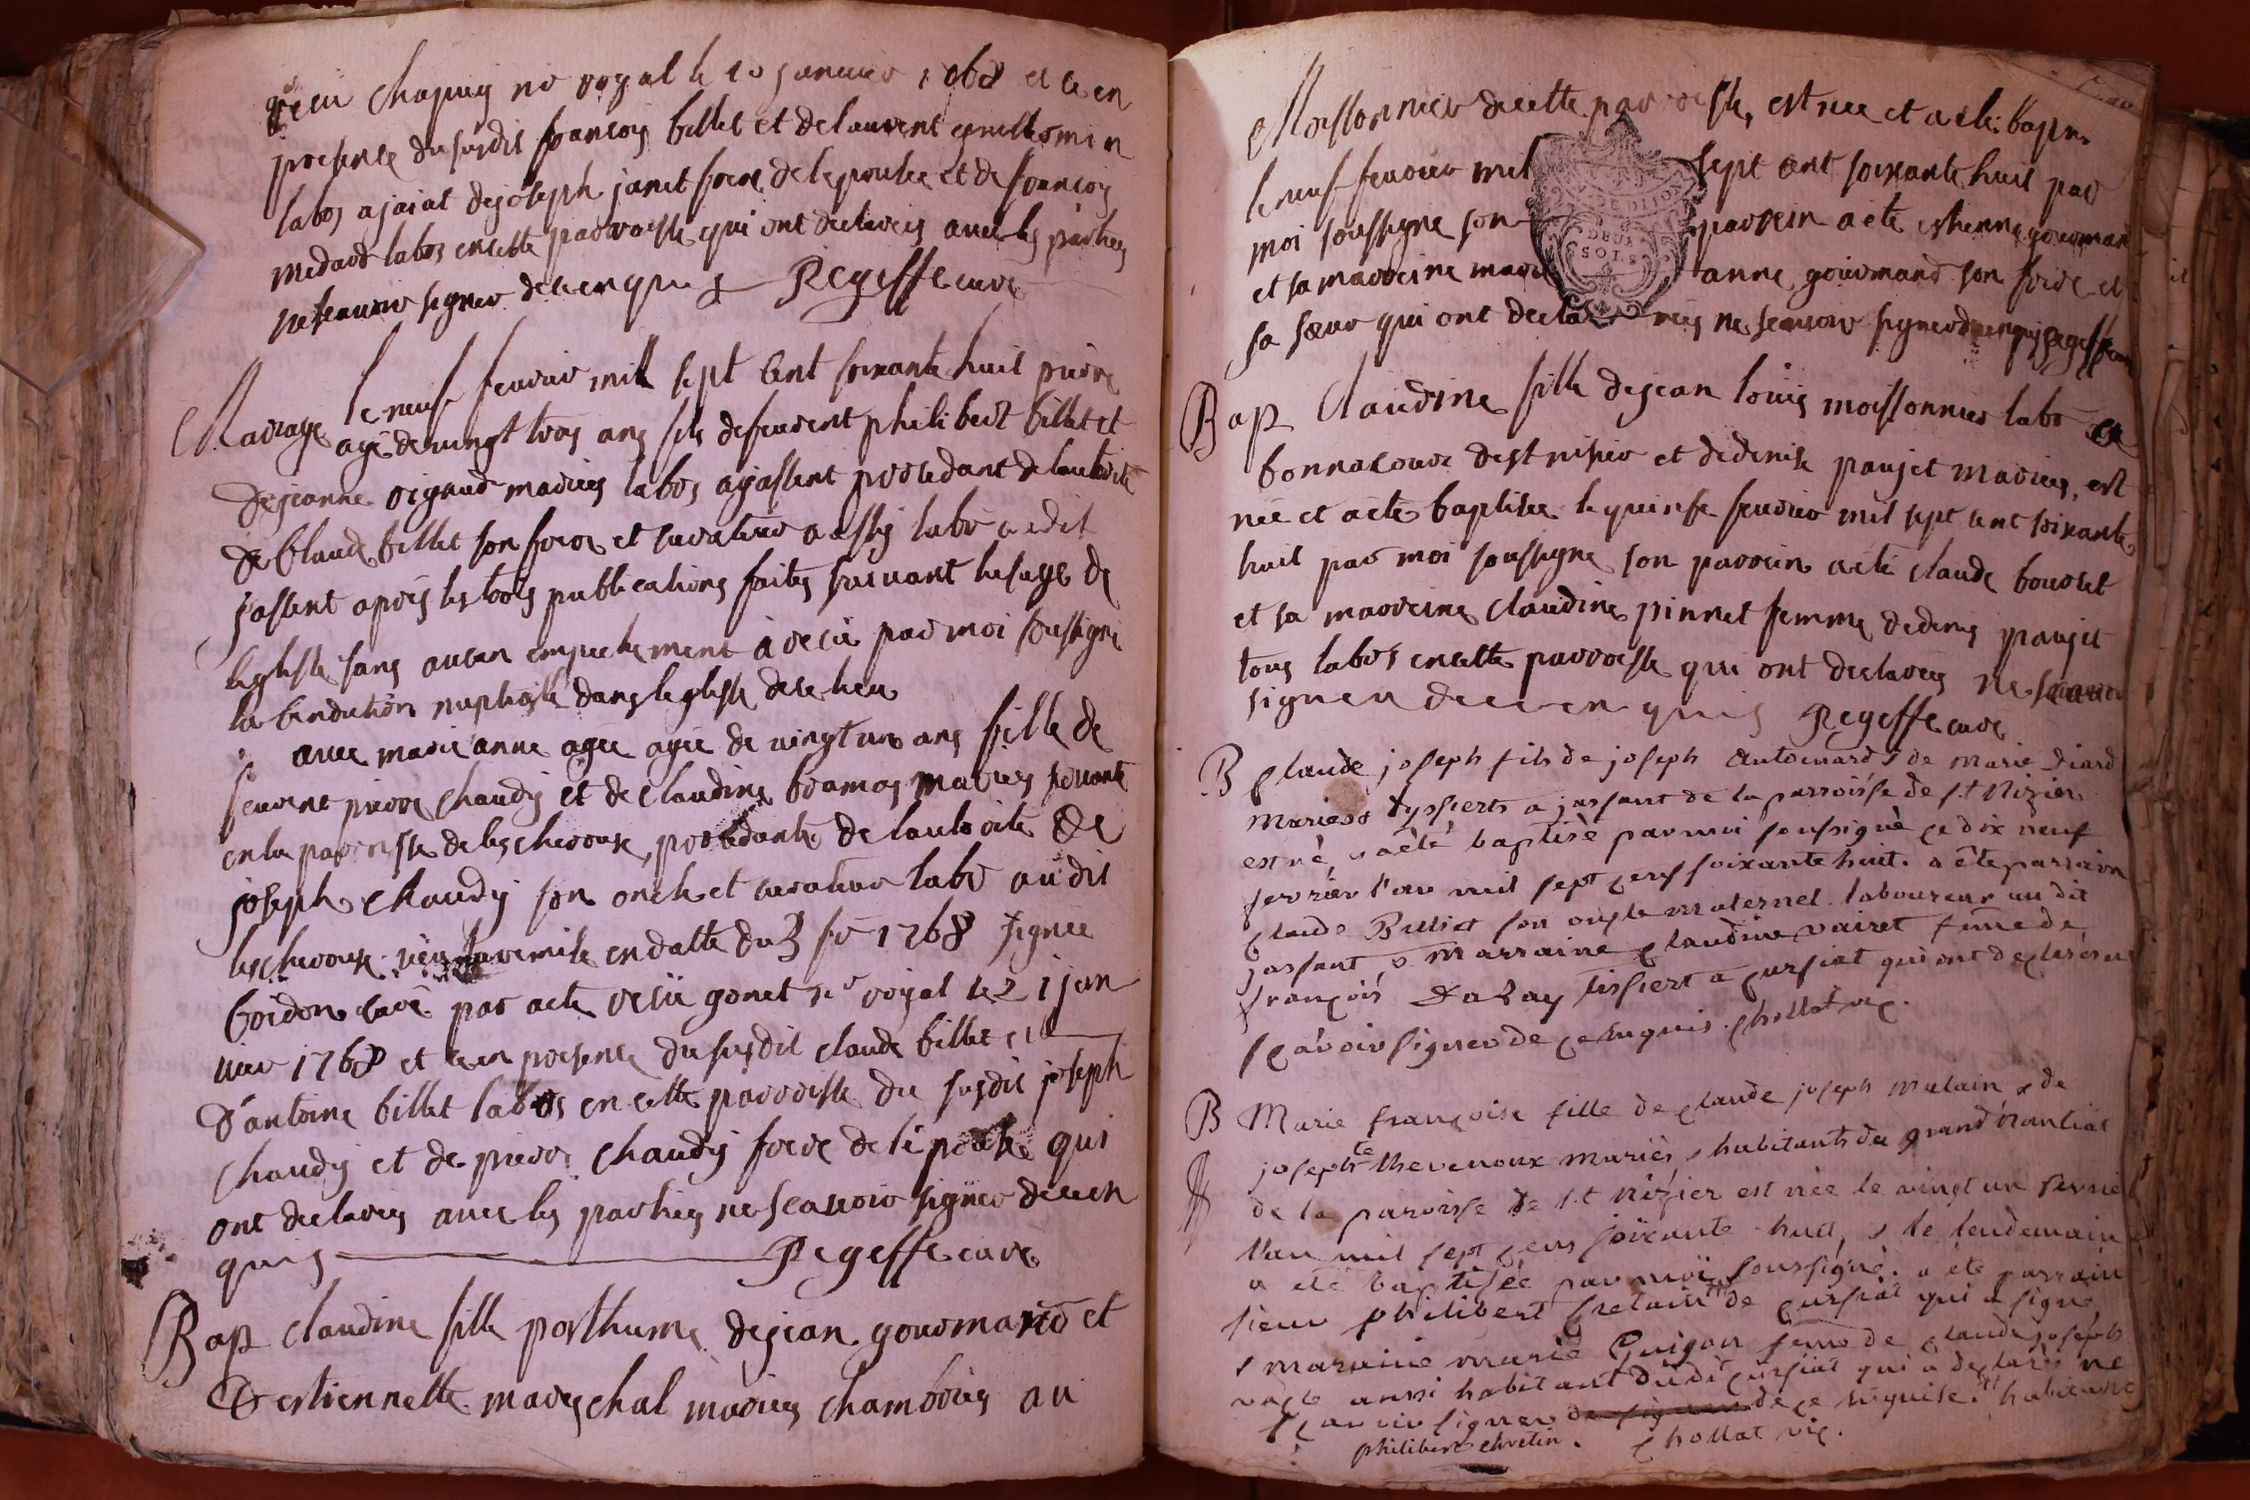 reçu Chapuis no royal le 20 janvier 1768 et ce en
presence du susdit francois billet et de laurent guillermin
labos a jaiat de joseph janet frere de lepouse et de francois
medard labos en cette parroisse qui ont declarés avec les parties
ne scavoir signer de ce enquis Regeffe curé
Mariage le neuf fevrier mill sept cent soixante huit pierre
agé de vingt trois ans fils de feurent philibert billet et
de jeanne mariés labos a jassent procedant de lautorité
de Claude billet son frere et curateur aussy labo audit
jassent apres les trois publications faites suivant lusage de
leglise sans aucun empechement a recu par moi soussigné
la benediction nuptiale dans leglise de ce lieu
avec marie anne agée agée de vingt un ans fille de
feurent pierre chaudy et de claudine mariés
en la parroisse de lescheroux, procedante de lautorité de
joseph chaudy son oncle et curateur labo audit
lescheroux remise en datte du 3 fev 1768 signée
boidon curé par acte recu gonet no royal le 21 jan
vier 1768 et ce en presence du susdit claude billet et
d'antoine billet labos en cette parroisse du susdit joseph
chaudy et de pierre chaudy frere de lépouse qui
ont declarés avec les parties ne scavoir signer de ce en
quis Regeffe curé
Bap claudine fille posthume de jean gourmand et
d estiennette mareschal mariés au
Moissonnier de cette parroisse, est née et a été bapt
le neuf fevrier mil sept cent soixante huit par
moi soussigné son parrein a été estienne gourmand
et sa marreine marie anne gourmand son frere et
sa sœur qui ont declarés ne scavoir signer de ce enquis Regeffe curé
Bap Claudine fille de jean louis moissonnier labo
de st nisier et de denise paujet mariés, est
née et a été baptisée le quinse fevrier mil sept cent soixante
huit par moi soussigné son parrein a été claude bouvret
et sa marreine claudine pinnet femme de denis paujet
tous labos en cette parroisse qui ont declarés ne scavoir
signer de ce en quis Regeffe curé
B Claude joseph fils de joseph & de marie
mariés tysserts a jassant de la parroisse de s.t Nizier
est né & a été baptisé par moi soussigné ce dix neuf
fevrier l'an mil sept cens soixante huit. a été parrain
claude son oncle maternel laboureur au dit
jassant, & marraine claudine vairet feme de
françois Dazay tissert a cursiat qui ont declarés ne
scavoir signer de ce enquis. chollat vic.
B Marie françoise fille de claude joseph & de
josephte thevenoux mariés, habitants du grand
de la paroisse de s.t nizier est née le vingt un fevrier
l'an mil sept cens soixante huit, & le lendemain
a été baptisée par moi soussigné. a été parrain
sieur philibert de cursiat qui a signé
& maraine marie Guigon feme de claude joseph
aussi habitant dudit cursiat qui a declaré ne
scavoir signer de ce enquise. habitant
philibert chretin. chollat vic.